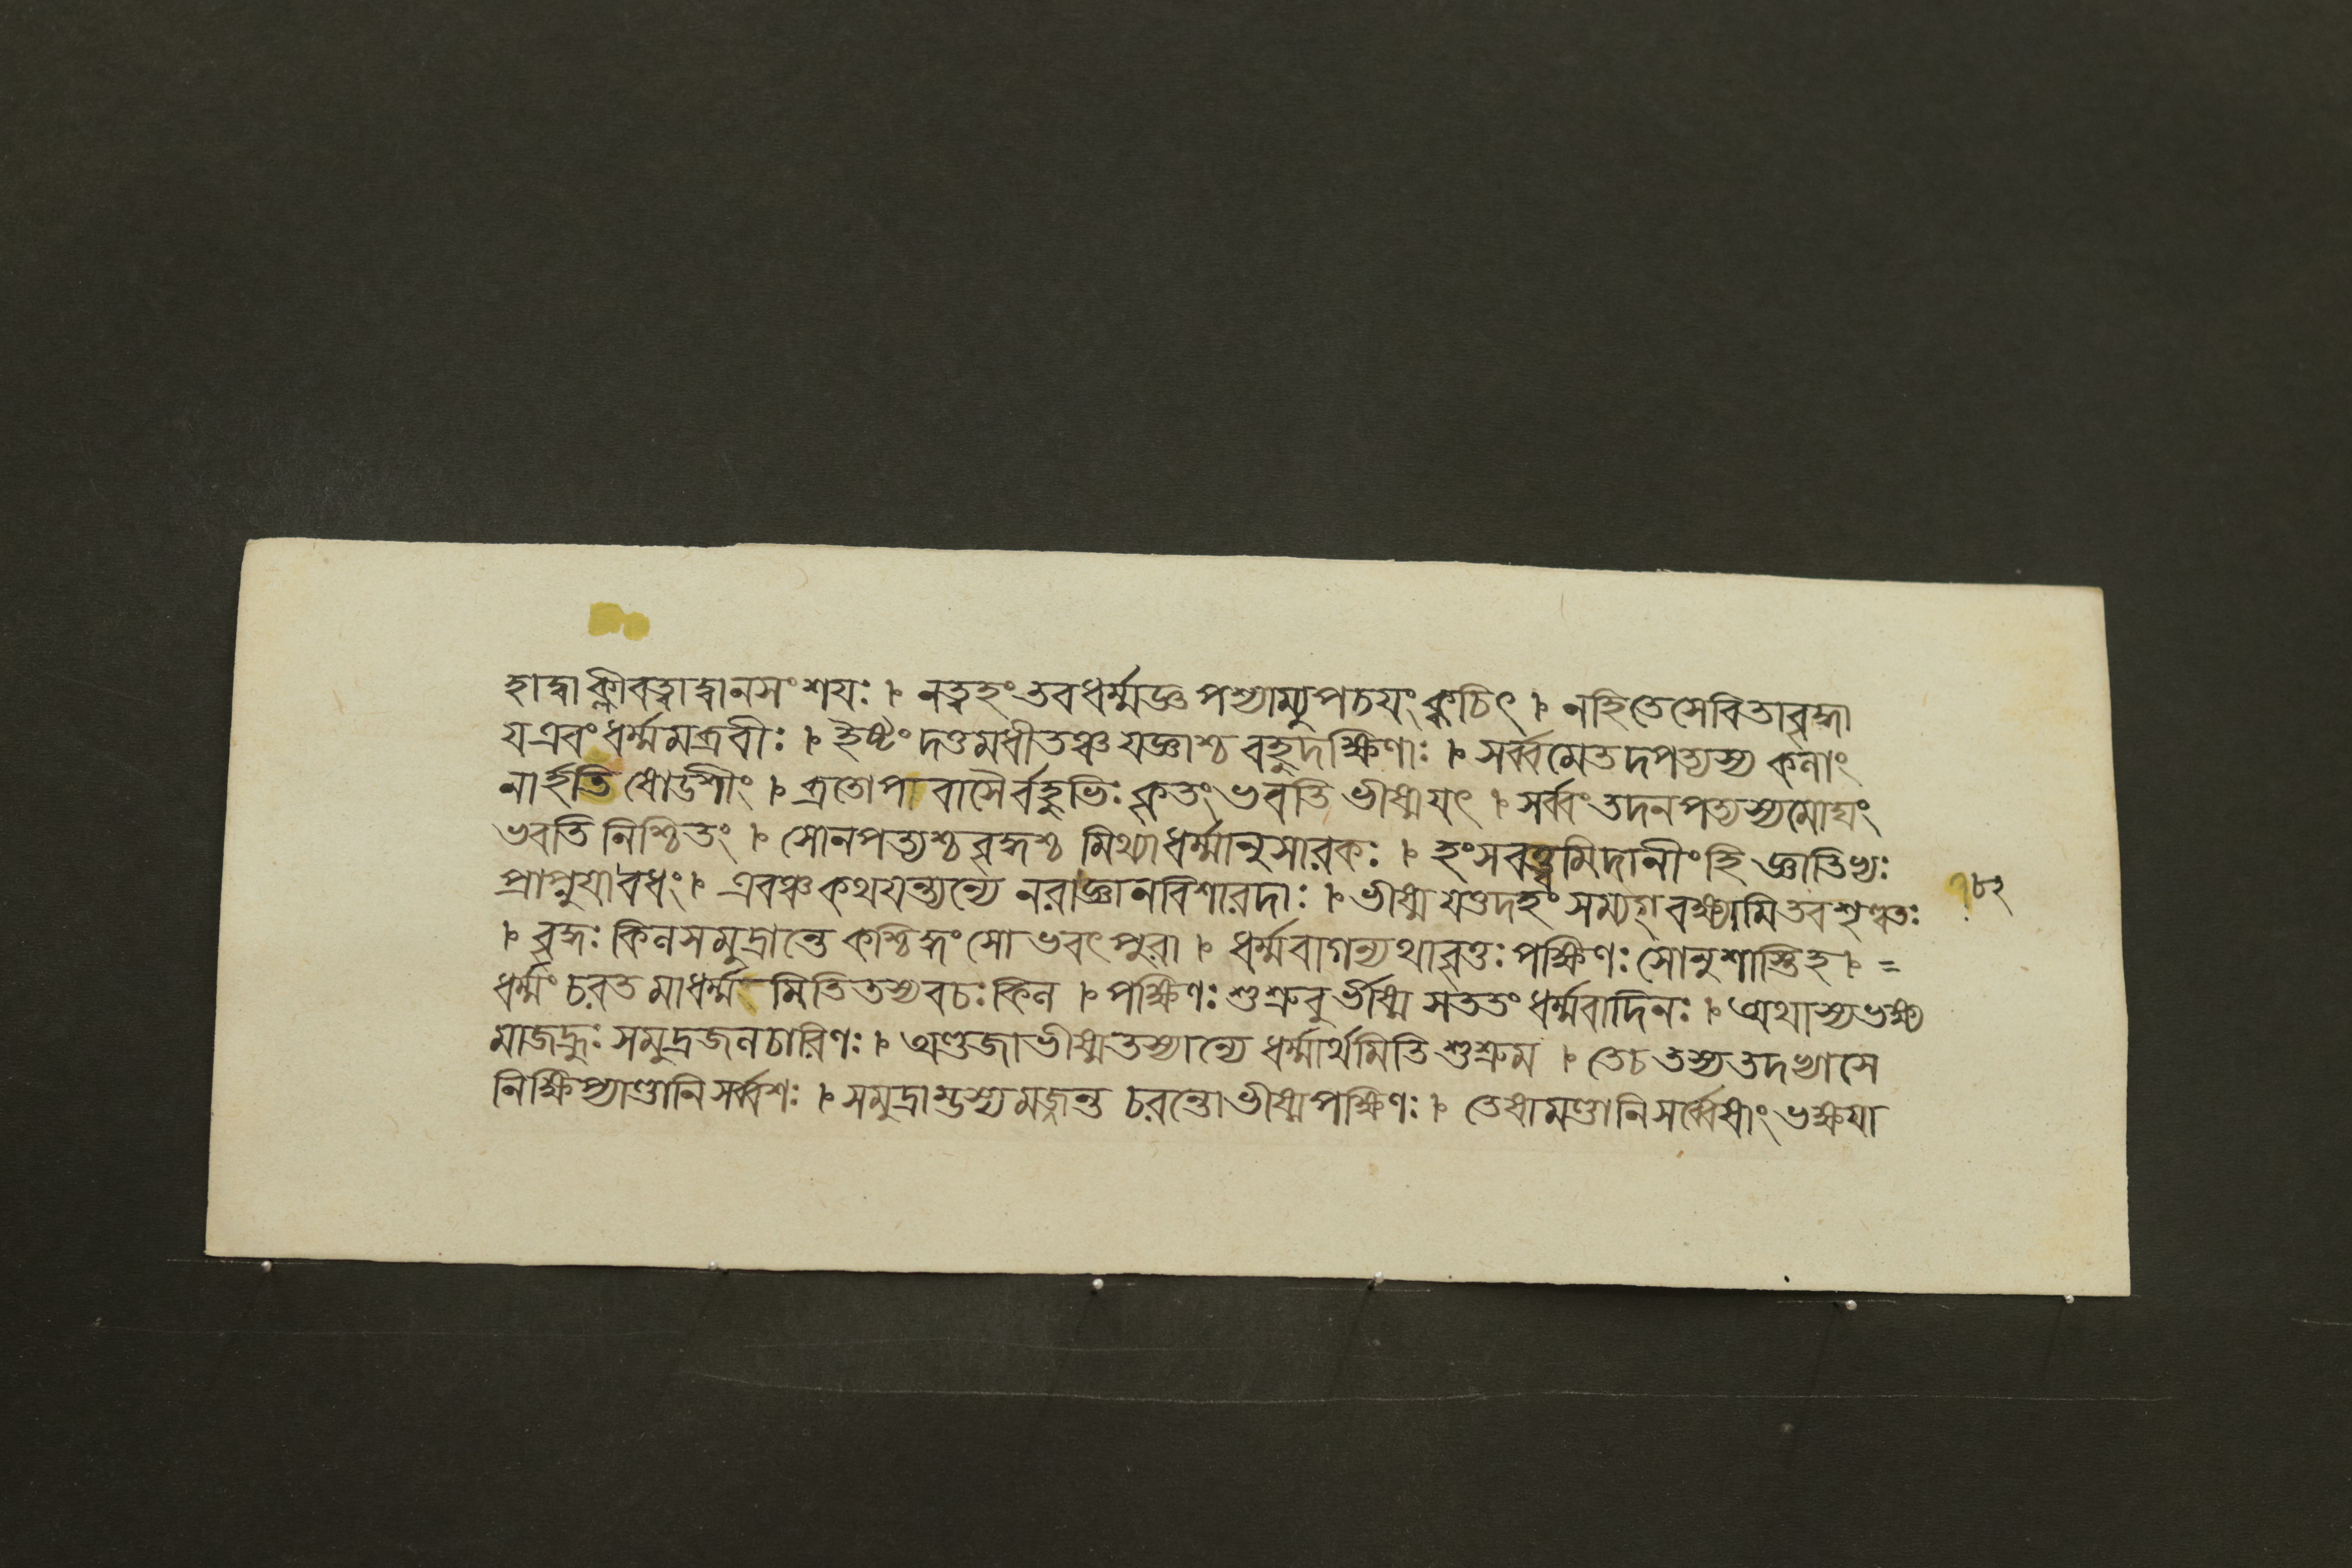 হাদ্বাক্লীবত্বাদ্বানসংশযঃ । নত্বহংতবধর্ম্মজ্ঞ পশ্যাম্যুপচযংক্বচিৎ । নহিতেসেবিতাবৃদ্ধা
যএবংধর্ম্মমব্রবীঃ । ইষ্টংদত্তমধীতঞ্চ যজ্ঞাশ্চ বহুদক্ষিণাঃ । সর্ব্বমেতদপত্যস্য কলাং
নার্হতি ষোডশীং । ব্রতোপবাসৈর্বহুভিঃ কৃতংভবতি ভীষ্মযৎ । সর্ব্বংতদনপত্যস্যমোঘং
ভবতি নিশ্চিতং । সোনপত্যশ্চবৃদ্ধশ্চ মিথ্যাধর্ম্মানুসারকঃ । হংসবত্ত্বমিদানীংহি জ্ঞাতিভ্যঃ
প্রাপ্নুযাবধং । এবঞ্চকথযন্ত্যন্যে নরাজ্ঞানবিশারদাঃ । ভীষ্মযত্তদহংসম্যগ্ বক্ষ্যামিতবশৃণ্বতঃ ১৮২
। বৃদ্ধঃ কিলসমুদ্রান্তে কশ্চিদ্ধংসোভবৎপুরা । ধর্ম্মবাগন্যথাবৃত্তঃপক্ষিণঃসোনুশাস্তিহ । =
ধর্ম্মংচরতমাধর্ম্ম মিতিতস্যবচঃকিল । পক্ষিণঃশুশ্রুবুর্ভীষ্ম সততংধর্ম্মবাদিনঃ । অথাস্যভক্ষ্য
মাজহ্রুঃ সমুদ্রজলচারিণঃ । অণ্ডজাভীষ্মতস্যান্যে ধর্ম্মার্থমিতিশুশ্রুম । তেচতস্যতদভ্যাসে
নিক্ষিপ্যাণ্ডানিসর্ব্বশঃ । সমুদ্রাম্ভস্যমজ্জন্ত চরন্তোভীষ্মপক্ষিণঃ । তেষামণ্ডানিসর্ব্বেষাংভক্ষযা